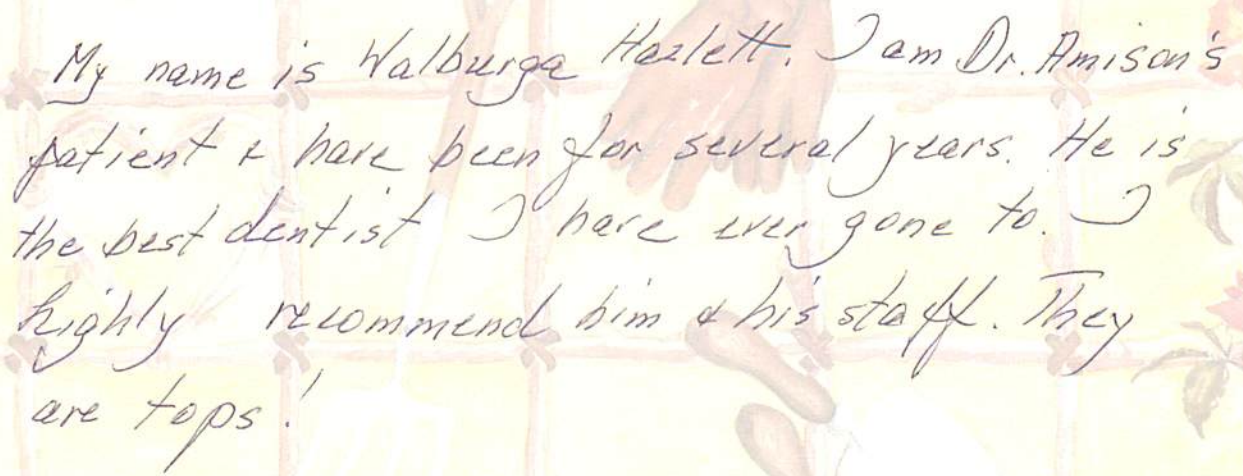 My name is Walburga Hazlett. I am Dr. Amison's
patient & have been for several years. He is
the best dentist I have ever gone to. I
highly recommend him & his staff. They
are tops!